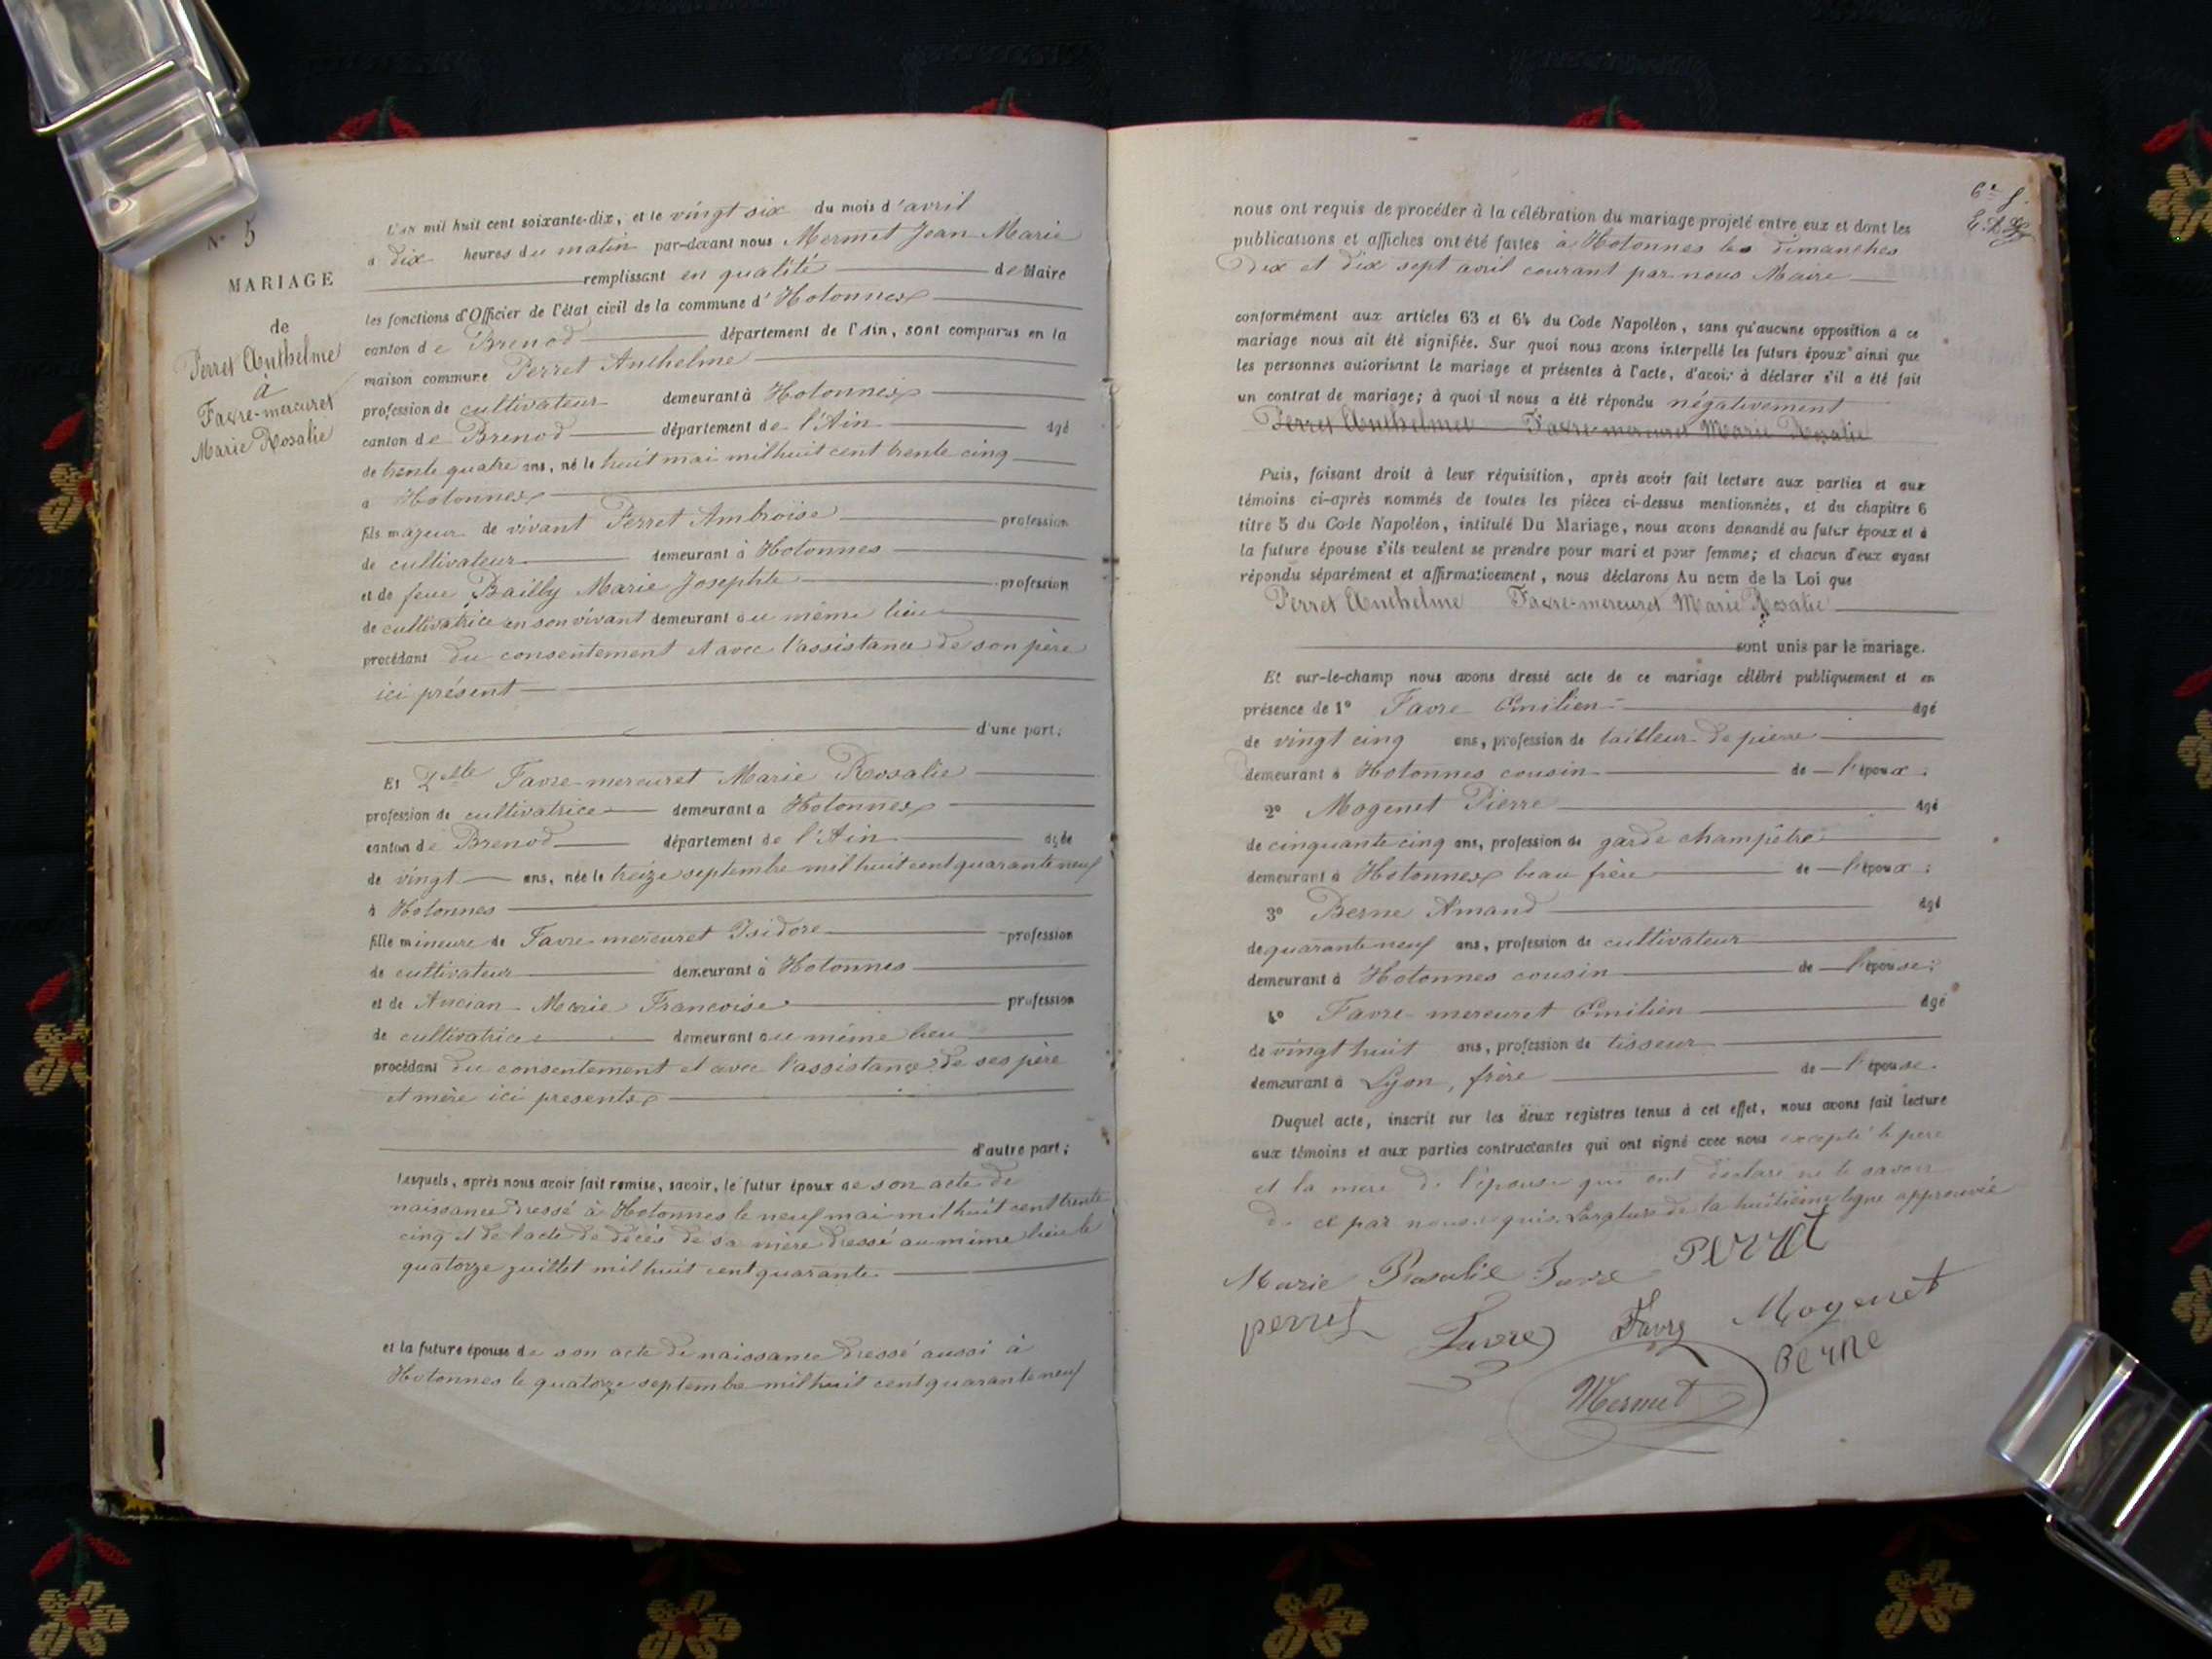 N° 5
MARIAGE
de
Perret Anthelme
à
Favre-mercuret
Marie Rosalie
L'AN mil huit cent soixante-dix, et le vingt six du mois d'avril
à dix heures du matin par-devant nous Mermet Jean Marie
remplissant en qualité de Maire
les fonctions d'Officier de l'état civil de la commune d'Hotonnes
canton de Brenod département de l'Ain, sont comparus en la
maison commune Perret Anthelme
profession de cultivateur demeurant à Hotonnes
canton de Brenod département de l'Ain âgé
de trente quatre ans, né le huit mai mil huit cent trente cinq
à Hotonnes
fils majeur de vivant Perret Ambroise profession
de cultivateur demeurant à Hotonnes
et de feue Bailly Marie Josephte profession
de cultivatrice en son vivant demeurant au même lieu
procédant du consentement et avec l'assistance de son père
ici présent
d'une part;
Et Delle Favre-mercuret Marie Rosalie
profession de cultivatrice demeurant à Hotonnes
canton de Brenod département de l'Ain âgée
de vingt ans, née le treize septembre mil huit cent quarante neuf
à Hotonnes
fille mineure de Favre-mercuret Isidore profession
de cultivateur demeurant à Hotonnes
et de Ancian Marie Francoise profession
de cultivatrice demeurant au même lieu
procédant du consentement et avec l'assistance de ses père
et mère ici presents
d'autre part;
lesquels, après nous avoir fait remise, savoir, le futur époux de son acte de
naissance dressé à Hotonnes le neuf mai mil huit cent trente
cinq et de l'acte de décès de sa mère dressé au même lieu le
quatorze juillet mil huit cent quarante
et la future épouse de son acte de naissance dressé aussi à
Hotonnes le quatorze septembre mil huit cent quarante neuf
6e f.
nous ont requis de procéder à la célébration du mariage projeté entre eux et dont les
publications et affiches ont été faites à Hotonnes les dimanches
dix et dix sept avril courant par nous Maire
conformément aux articles 63 et 64 du Code Napoléon, sans qu'aucune opposition à ce
mariage nous ait été signifiée. Sur quoi nous avons interpellé les futurs époux ainsi que
les personnes autorisant le mariage et présentes à l'acte, d'avoir à déclarer s'il a été fait
un contrat de mariage; à quoi il nous a été répondu négativement
Perret Anthelme Favre-mercuret Marie Rosalie
Puis, faisant droit à leur réquisition, après avoir fait lecture aux parties et aux
témoins ci-après nommés de toutes les pièces ci-dessus mentionnées, et du chapitre 6
titre 5 du Code Napoléon, intitulé Du Mariage, nous avons demandé au futur époux et à
la future épouse s'ils veulent se prendre pour mari et pour femme; et chacun d'eux ayant
répondu séparément et affirmativement, nous déclarons Au nom de la Loi que
Perret Anthelme Favre-mercuret Marie Rosalie
sont unis par le mariage.
Et sur-le-champ nous avons dressé acte de ce mariage célébré publiquement et en
présence de 1° Favre Emilien âgé
de vingt cinq ans, profession de tailleur de pierre
demeurant à Hotonnes cousin de l'époux;
2° Mogenet Pierre âgé
de cinquante cinq ans, profession de garde champêtre
demeurant à Hotonnes beau frère de l'époux;
3° Berne Amand âgé
de quarante neuf ans, profession de cultivateur
demeurant à Hotonnes cousin de l'épouse;
4° Favre-mercuret Emilien âgé
de vingt huit ans, profession de tisseur
demeurant à Lyon, frère de l'épouse.
Duquel acte, inscrit sur les deux registres tenus à cet effet, nous avons fait lecture
aux témoins et aux parties contractantes qui ont signé avec nous excepté le père
et la mère de l'épouse qui ont déclaré ne le savoir
de ce par nous requis. La rature de la huitième ligne approuvée
Marie Rosalie Favre Perret
perret Favre Favre Mogenet
Berne
Mermet